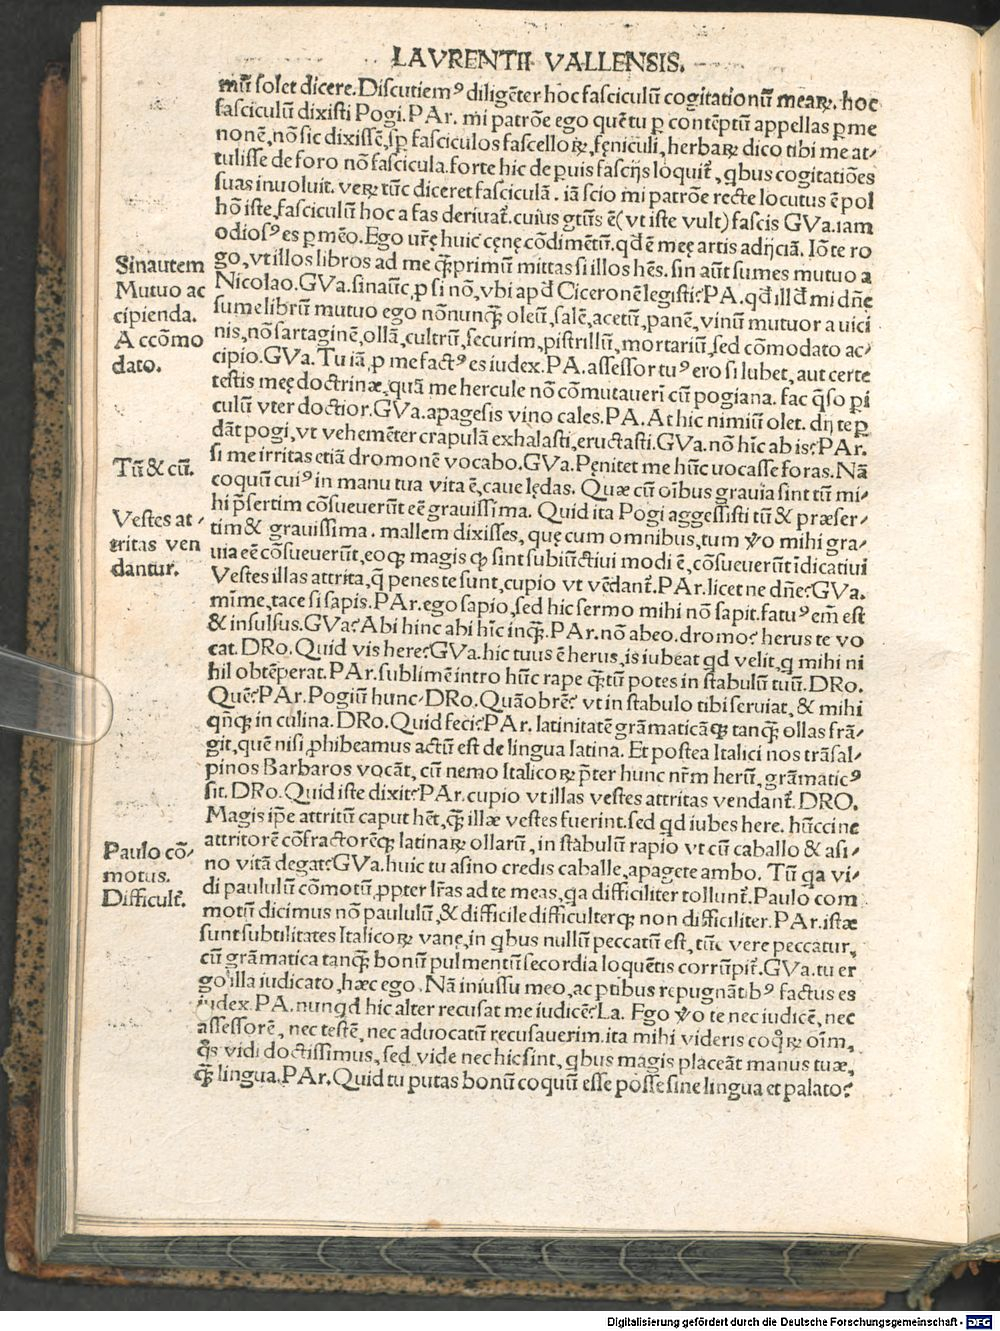 LAVRENTII VALLENSIS.
mū solet dicere. Discutiemꝰ diligēter hoc fasciculū cogitationū mearꝝ. hoc
fasciculū dixisti Pogi. PAr. mi patrōe ego quē tu ꝑ contēptū appellas ꝑ me
nonē, nō sic dixissē, sꝫ ꝑ fasciculos fascellorꝝ, fęniculi, herbarꝝ dico tibi me at⸗
tulisse de foro nō fascicula. forte hic de puis fascijs loquit̄, qbus cogitatiōes
suas inuoluit. verꝝ tūc diceret fasciculā. iā scio mi patrōe recte locutus ē pol
hō iste, fasciculū hoc a fas deriuat̄. cuius gtūs ē (vt iste vult) fascis GVa. iam
odiosꝰ es ꝑ mēo. Ego ur̄ę huic cęnę cōdimētū. qd ē męę artis adijciā. Iō te ro
Sinautem
go, vt illos libros ad me qꝫprimū mittas si illos hēs. sin aūt sumes mutuo a
Mutuo ac
Nicolao. GVa. sinaūc, ꝓ si nō, vbi apd̄ Ciceronē legisti? PA. qd̄ illd̄ mi dn̄e
cipienda.
sume librū mutuo ego nōnunqꝫ oleū, salē, acetū, panē, vinū mutuor a uici
A ccōmo
nis, nō sartaginē, ollā, cultrū, securim, pistrillū, mortariū, sed cōmodato ac⸗
dato.
cipio. GVa. Tu iā, ꝓ me factꝰ es iudex. PA. assessor tuꝰ ero si lubet, aut certe
testis męę doctrinæ, quā me hercule nō cōmutaueri cū pogiana. fac qso pi
culū vter doctior. GVa. apagesis vino cales. PA. At hic nimiū olet. dij te ꝑ
dāt pogi, vt vehemēter crapulā exhalasti, eructasti. GVa. nō hīc ab is? PAr.
Tū & cū.
si me irritas etiā dromonē vocabo. GVa. Pęnitet me hūc uocasse foras. Nā
coquū cuiꝰ in manu tua vita ē, caue lędas. Quæ cū oībus grauia sint tū mi⸗
hi p̄sertim cōsueuerūt eē grauissima. Quid ita Pogi aggessisti tū & præser⸗
Vestes at⸗
tim & grauissima. mallem dixisses, quę cum omnibus, tum vo mihi gra⸗
tritas ven
uia eē cōsueuerūt, eoqꝫ magis ꝙ sint subiūctiui modi ē, cōsueuerūt īdicatiui
dantur.
Vestes illas attrita, q̄ penes te sunt, cupio vt vēdant̄. PAr. licet ne dn̄e? GVa.
mīme, tace si sapis. PAr. ego sapio, sed hic sermo mihi nō sapit. fatuꝰ em̄ est
& insulsus. GVa? Abi hinc abi hīc inqꝫ. PAr. nō abeo. dromo? herus te vo
cat. DRo. Quid vis here? GVa. hic tuus ē herus, is iubeat qd velit, q mihi ni
hil obtēperat. PAr. sublimē intro hūc rape qꝫtū potes in stabulū tuū. DRo.
Quē? PAr. Pogiū hunc? DRo. Quāobrē? vt in stabulo tibi seruiat, & mihi
qn̄qꝫ in culina. DRo. Quid feci? PAr. latinitatē grāmaticāqꝫ tanqꝫ ollas frā⸗
git, quē nisi ꝓhibeamus actū est de lingua latina. Et postea Italici nos trāsal⸗
pinos Barbaros vocāt, cū nemo Italicorꝝ p̄ter hunc nr̄m herū, grāmaticꝰ
sit. DRo. Quid iste dixit? PAr. cupio vt illas vestes attritas vendant̄. DRO.
Magis ip̄e attritū caput hēt, qꝫ illæ vestes fuerint. sed qd iubes here. hūccine
attritorē cōfractorēqꝫ latinarꝝ ollarū, in stabulū rapio vt cū caballo & asi⸗
Paulo cō⸗
no vitā degat? GVa. huic tu asino credis caballe, apagete ambo. Tū qa vi⸗
motus.
di paululū cōmotū, ꝓpter lr̄as ad te meas, qa difficiliter tollunt̄. Paulo com
Difficult̄.
motū dicimus nō paululū, & difficile difficulterqꝫ non difficiliter. PAr. istæ
sunt subtilitates Italicorꝝ vanę, in qbus nullū peccatū est, tūc vere peccatur,
cū grāmatica tanqꝫ bonū pulmentū secordia loquētis corrūpit̄. GVa. tu er
go illa iudicato, hæc ego. Nā iniussu meo, ac ptibus repugnātibꝰ factus es
iudex. PA. nunqd hic alter recusat me iudicē? La. Ego vo te nec iudicē, nec
assessorē, nec testē, nec aduocatū recusauerim. ita mihi videris coqrꝝ oīm,
qs vidi doctissimus, sed vide nec hic sint, qbus magis placeāt manus tuæ,
qꝫ lingua. PAr. Quid tu putas bonū coquū esse posse sine lingua et palato?
Digitalisierung gefördert durch die Deutsche Forschungsgemeinschaft - DFG